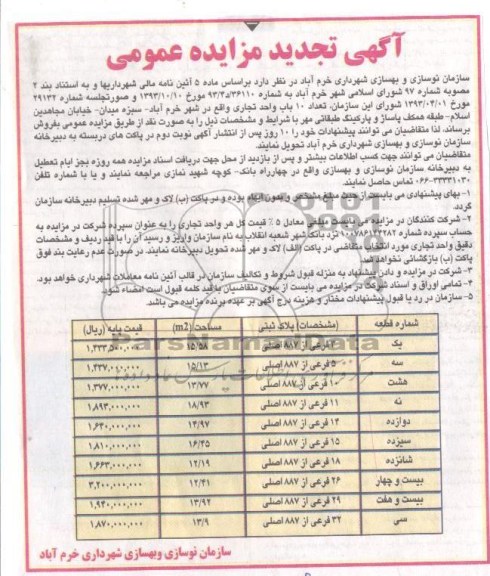 آگهی تجدید مزایده عمومی
سازمان نوسازی و بهسازی شهرداری خرم آباد در نظر دارد براساس ماده ۵ آئین نامه مالی شهرداریها و به استناد بند ۲
مصوبه شماره ۹۷ شورای اسلامی شهر خرم آباد به شماره ۹۳/۴د/۳۶۱۱۰ مورخ ۱۳۹۳/۱۰/۱۰ و صورتجلسه شماره ۲۹۱۳۲
مورخ ۱۳۹۳/۰۴/۰۱ شورای این سازمان، تعداد ۱۰ باب واحد تجاری واقع در شهر خرم آباد- سبزه میدان- خیابان مجاهدین
اسلام- طبقه همکف پاساژ و پارکینگ طبقاتی مهر با شرایط و مشخصات ذیل را به صورت نقد از طریق مزایده عمومی بفروش
برساند، لذا متقاضیان می توانند پیشنهادات خود را ۱۰ روز پس از انتشار آگهی نوبت دوم در پاکت های دربسته به دبیرخانه
سازمان نوسازی و بهسازی شهرداری خرم آباد تحویل نمایند.
متقاضیان می توانند جهت کسب اطلاعات بیشتر و پس از بازدید از محل جهت دریافت اسناد مزایده همه روزه بجز ایام تعطیل
به دبیرخانه سازمان نوسازی و بهسازی واقع در چهارراه بانک- کوچه شهید نمازی مراجعه نمایند و یا با شماره تلفن
۰۶۶-۳۳۳۳۱۰۳۰ تماس حاصل نمایند.
۱- بهای پیشنهادی می بایست از حیث مبلغ مشخص و بدون ابهام بوده و در پاکت (ب) لاک و مهر شده تسلیم دبیرخانه سازمان
گردد.
۲- شرکت کنندگان در مزایده می بایست مبلغی معادل ۵ ٪ قیمت کل هر واحد تجاری را به عنوان سپرده شرکت در مزایده به
حساب سپرده شماره ۱۰۰۷۸۶۱۲۳۲۸۲ نزد بانک شهر شعبه انقلاب به نام سازمان واریز و رسید آن را با قید ردیف و مشخصات
دقیق واحد تجاری مورد انتخاب متقاضی در پاکت (الف) لاک و مهر شده تحویل دبیرخانه نمایند. در صورت عدم رعایت بند فوق
پاکت (ب) بازگشائی نخواهد شد.
۳- شرکت در مزایده و دادن پیشنهاد به منزله قبول شروط و تکالیف سازمان در قالب آئین نامه معاملات شهرداری خواهد بود.
۴- تمامی اوراق و اسناد شرکت در مزایده می بایست از سوی متقاضیان با قید کلمه قبول است امضاء شود.
۵- سازمان در رد یا قبول پیشنهادات مختار و هزینه درج آگهی بر عهده برنده مزایده می باشد.
شماره قطعه (مشخصات) پلاک ثبتی مساحت (m2) قیمت پایه (ریال)
یک ۳ فرعی از ۸۸۷ اصلی ۱۵/۵۸ ۱,۳۳۳,۵۰۰,۰۰۰
سه ۵ فرعی از ۸۸۷ اصلی ۱۵/۱۳
هشت ۱۰ فرعی از ۸۸۷ اصلی ۱۳/۷۷ ۱,۳۷۷,۰۰۰,۰۰۰
نه ۱۱ فرعی از ۸۸۷ اصلی ۱۸/۹۳ ۱,۸۹۳,۰۰۰,۰۰۰
دوازده ۱۴ فرعی از ۸۸۷ اصلی ۱۴/۹۷ ۱,۶۴۰,۰۰۰,۰۰۰
سیزده ۱۵ فرعی از ۸۸۷ اصلی ۱۶/۴۵ ۱,۸۱۰,۰۰۰,۰۰۰
شانزده ۱۸ فرعی از ۸۸۷ اصلی ۱۲/۱۹ ۱,۶۶۳,۰۰۰,۰۰۰
بیست و چهار ۲۶ فرعی از ۸۸۷ اصلی ۱۲/۴۱ ۳,۲۰۰,۰۰۰,۰۰۰
بیست و هفت ۲۹ فرعی از ۸۸۷ اصلی ۱۳/۹۲ ۱,۹۴۰,۰۰۰,۰۰۰
سی ۳۲ فرعی از ۸۸۷ اصلی ۱۳/۹ ۱,۸۷۰,۰۰۰,۰۰۰
سازمان نوسازی وبهسازی شهرداری خرم آباد